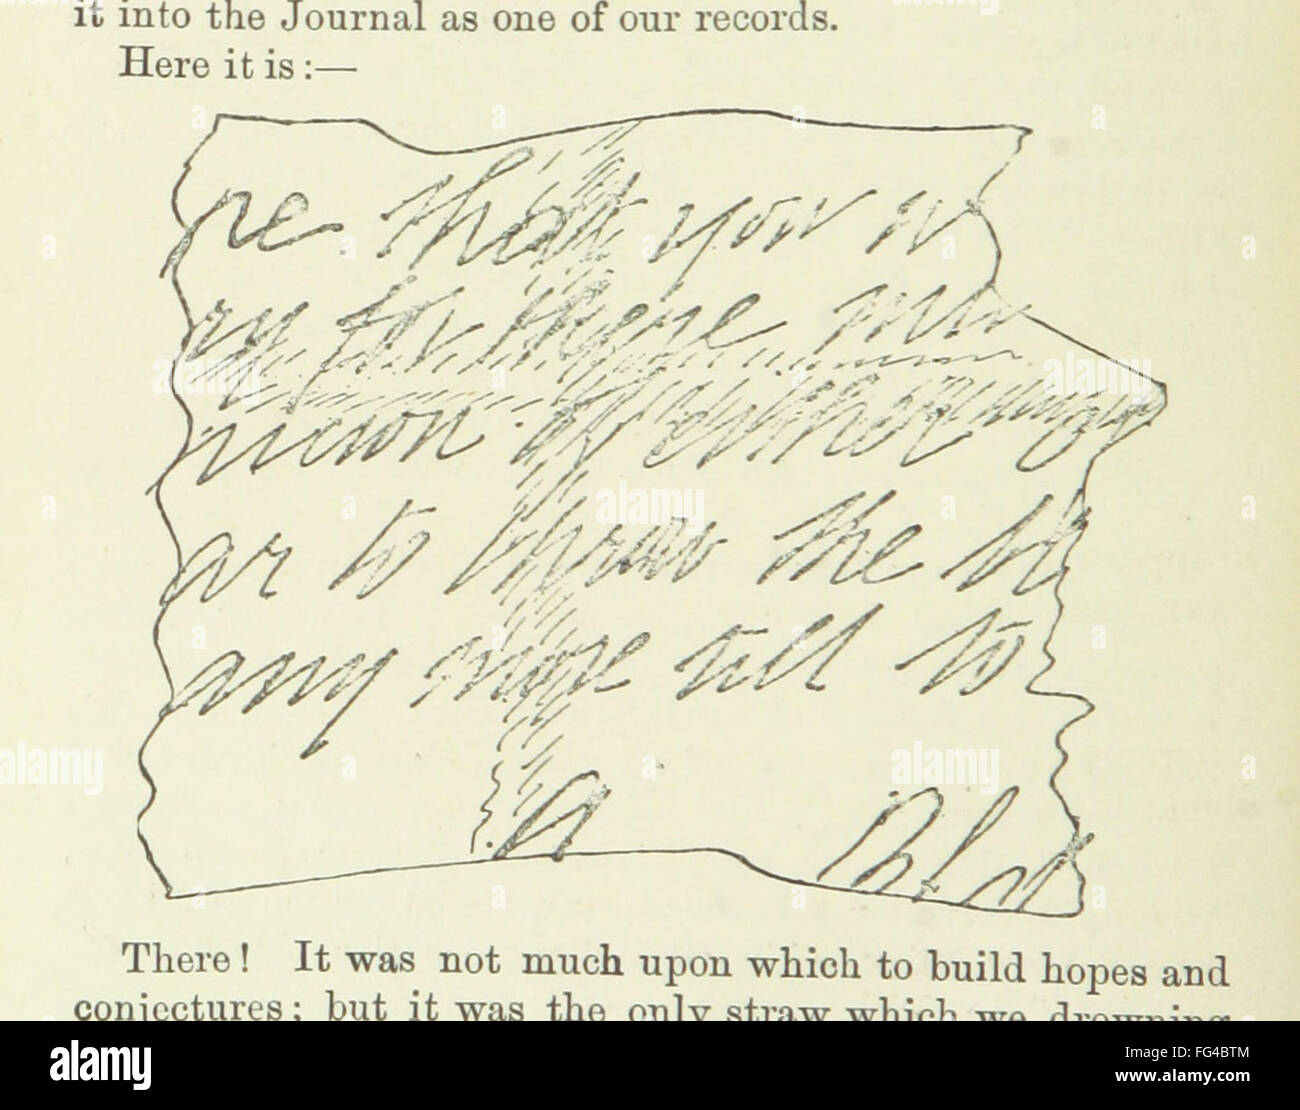 it into the Journal as one of our records.
Here it is :—
re that you w
ry for there mu
nicion of either
ar to throw the bl
any more till to
a Bla
There! It was not much upon which to build hopes and
conjectures; but it was the only straw which we drowning
alamy
Image ID: FG4BTM
www.alamy.com